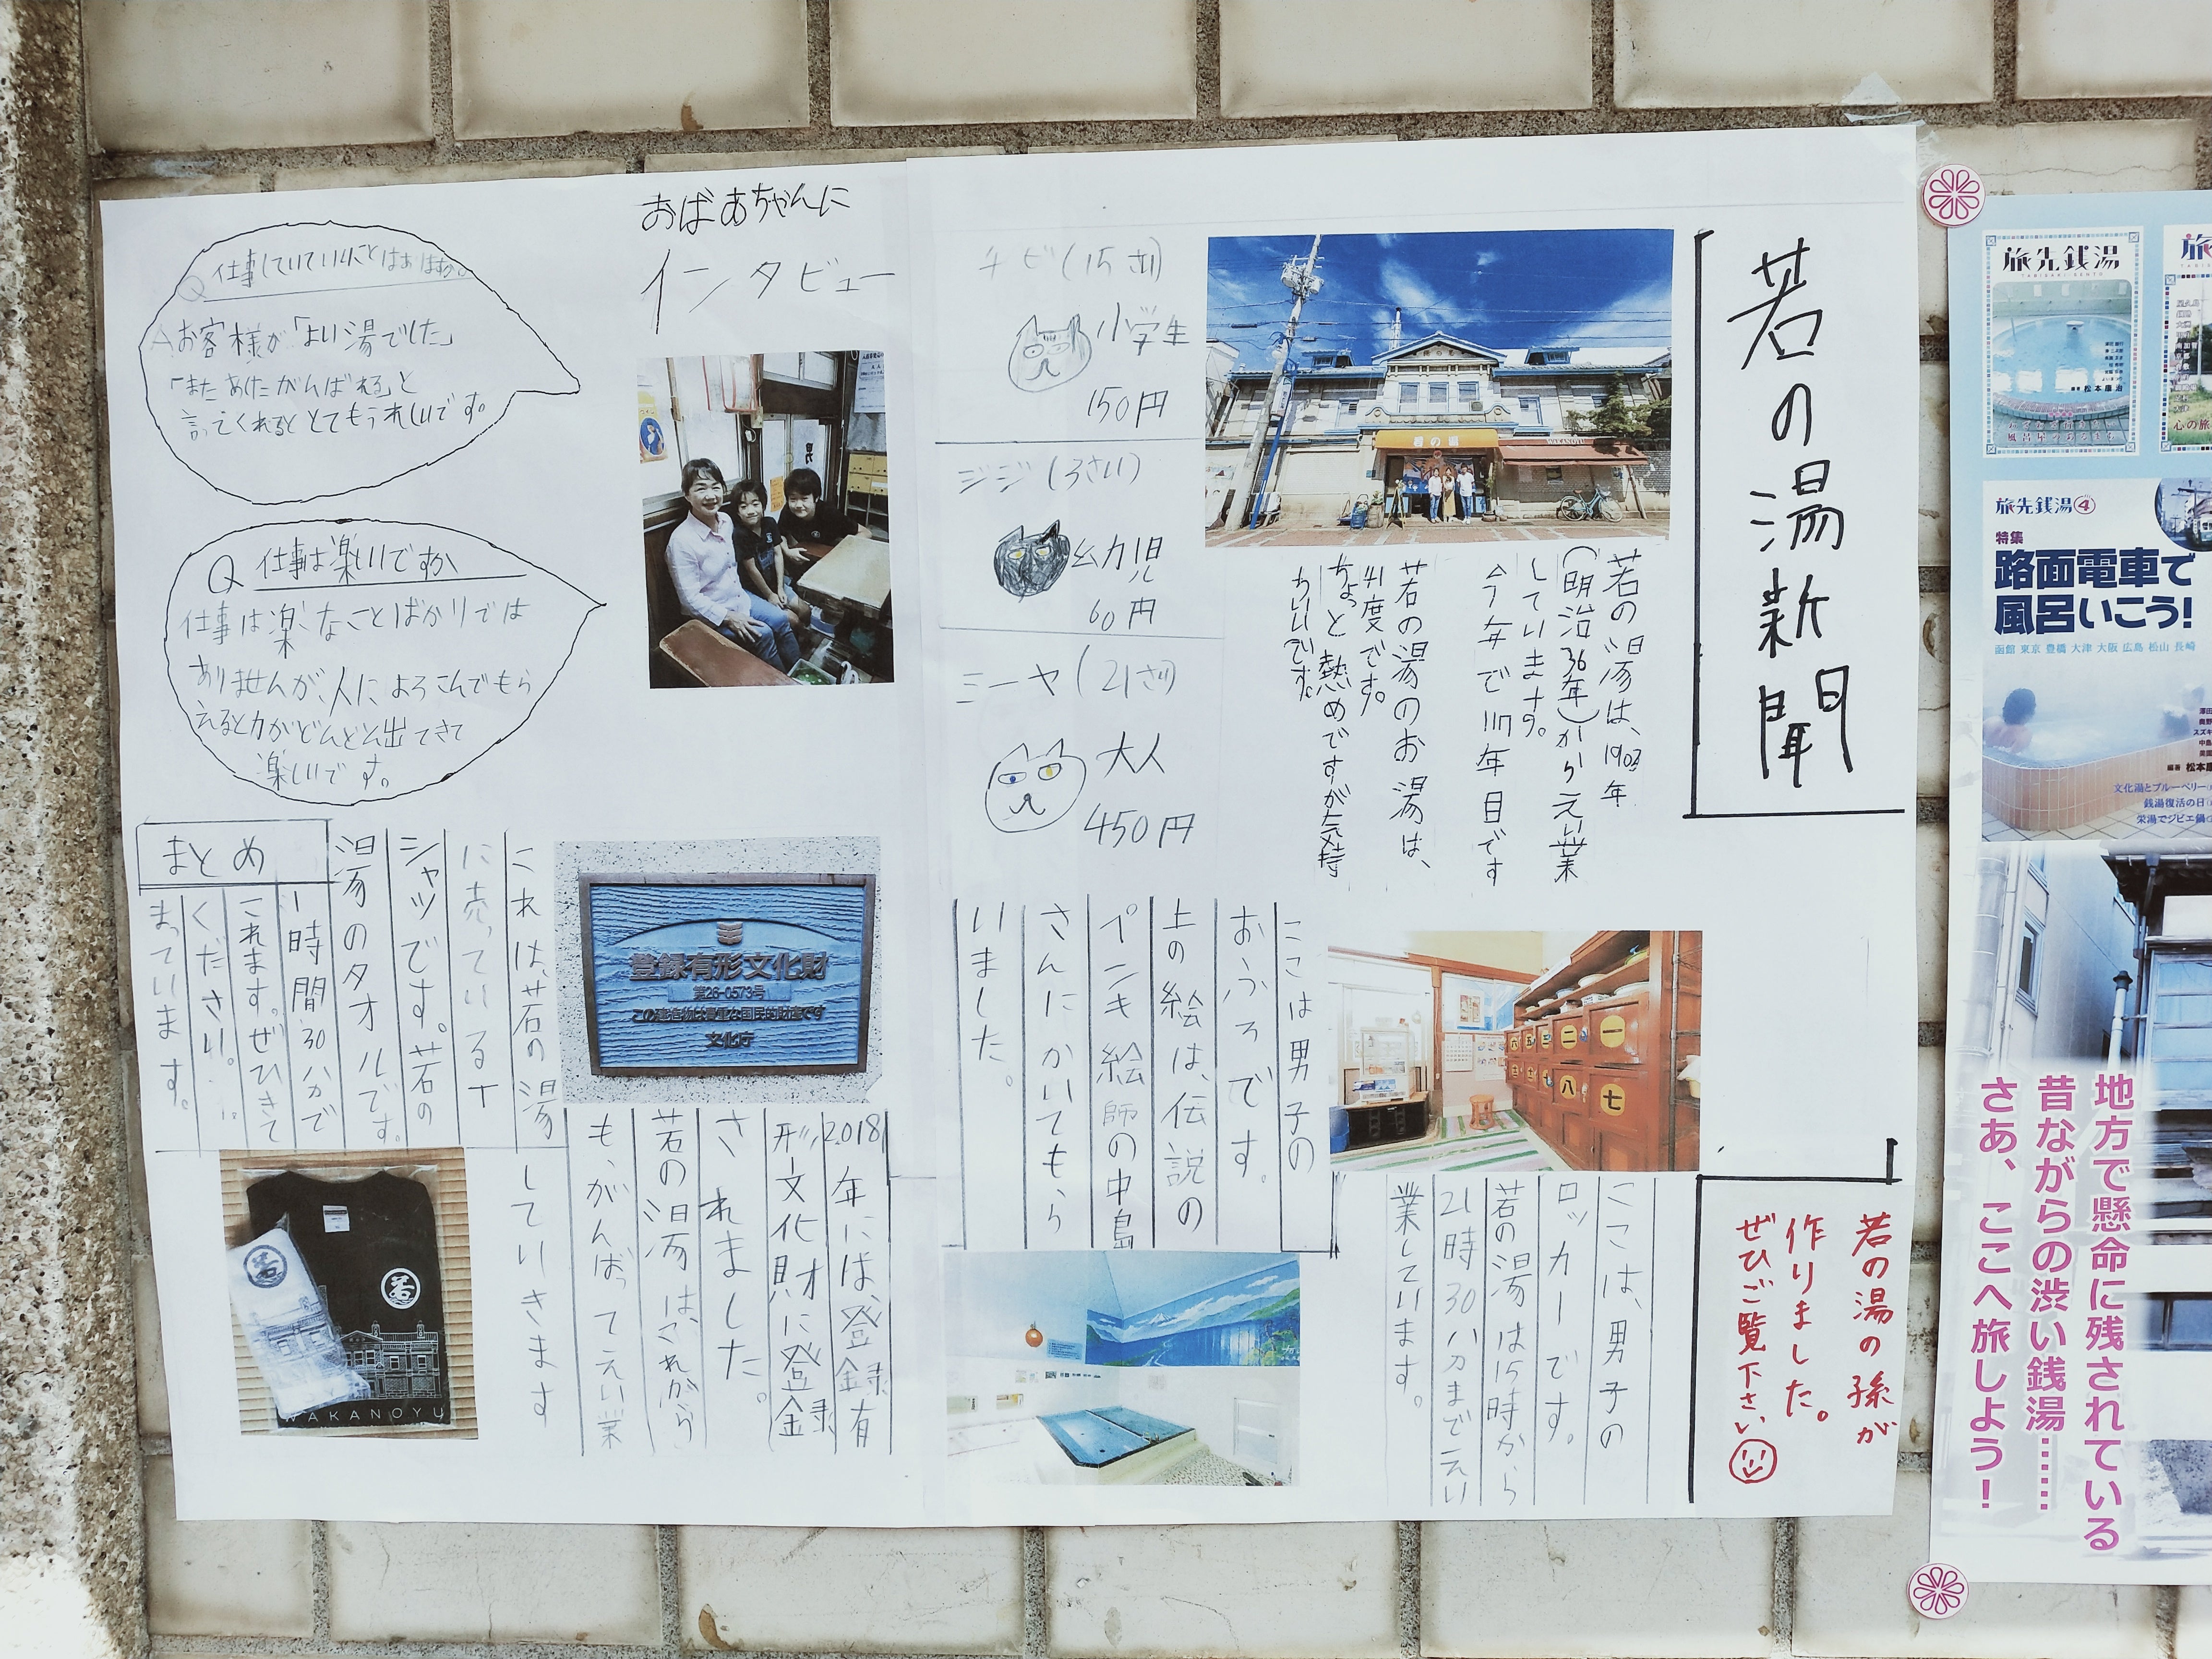 若の湯新聞
若の湯は、1903年
(明治36年)からえい業
しています。
今年で117年目です
若の湯のお湯は、
41度です。
ちょっと熱めですが気持
ちいいです。
チビ(15さい)
小学生
150円
ジジ(3さい)
幼児
60円
ミーヤ(21さい)
大人
450円
若の湯の孫が
作りました。
ぜひご覧下さい
ここは、男子の
ロッカーです。
若の湯は15時から
21時30分までえい
業しています。
ここは男子の
おふろです。
上の絵は、伝説の
ペンキ絵師の中島
さんにかいてもら
いました。
おばあちゃんに
インタビュー
Q 仕事していていいことは
Aお客様が「よい湯でした」
「またあしたがんばれる」と
言ってくれるととてもうれしいです。
Q 仕事は楽しいですか
仕事は楽なことばかりでは
ありませんが、人によろこんでもら
えると力がどんどん出てきて
楽しいです。
登録有形文化財
第26-0573号
この建造物は貴重な国民的財産です
文化庁
2018年には、登録有
形文化財に登録
されました。
若の湯は、これから
も、がんばってえい業
していきます
これは、若の湯
に売っているT
シャツです。若の
湯のタオルです。
まとめ
1時間30分で
これます。ぜひきて
ください。
まっています。
若
若
WAKANOYU
若の湯
WAKANOYU
一
二
三
五
六
七
八
十
旅先銭湯
松本康治
風呂屋のあるまち
旅先銭湯④
特集
路面電車で
風呂いこう!
函館 東京 豊橋 大津 大阪 広島 松山 長崎
編著 松本康
文化湯とブルーベリー
銭湯復活の日
栄湯でジビエ鍋
心の旅
地方で懸命に残されている
昔ながらの渋い銭湯………
さあ、ここへ旅しよう!